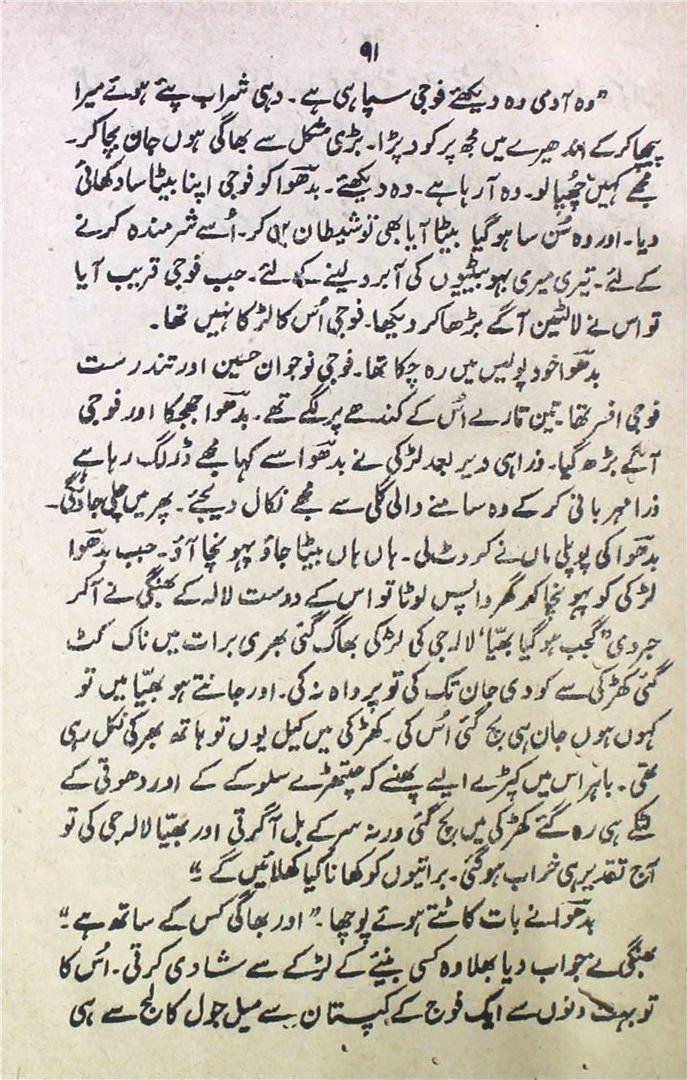 ۹۱
”وہ آدمی وہ دیکھئے فوجی سپاہی ہے۔ دہی شراب پئے ہوئے میرا
پیچھا کر کے اندھیرے میں مجھ پر کود پڑا۔ بڑی مشکل سے بھاگی ہوں جان بچا کر۔
مجھے کہیں چُھپا لو۔ وہ آرہا ہے۔ وہ دیکھئے۔ بدھوا کو فوجی اپنا بیٹا سا دکھائی
دیا۔ اور وہ سُن سا ہو گیا بیٹا آیا بھی تو شیطان بن کر۔ اُسے شرمندہ کرنے
کے لئے۔ تیری میری بہو بیٹیوں کی آبرو لینے کے لئے۔ جب فوجی قریب آیا
تو اس نے لالٹین آگے بڑھا کر دیکھا۔ فوجی اُس کا لڑکا نہیں تھا۔
بدھوا خود پولیس میں رہ چکا تھا۔ فوجی نوجوان حسین اور تندرست
فوجی افسر تھا۔ تین تارے اُس کے کندھے پر لگے تھے۔ بدھوا جھجکا اور فوجی
آگے بڑھ گیا۔ ذرا ہی دیر بعد لڑکی نے بدھوا سے کہا مجھے ڈر لگ رہا ہے
ذرا مہربانی کر کے وہ سامنے والی گلی سے مجھے نکال دیجئے۔ پھر میں چلی جاؤنگی۔
بدھوا کی پوپلی ماں نے کروٹ لی۔ ہاں ہاں بیٹا جاؤ پہونچا آؤ۔ جب بدھوا
لڑکی کو پہونچا کر گھر واپس لوٹا تو اس کے دوست لالہ کے بھنگی نے آکر
خبر دی ”گجب ہو گیا بھیّا‘ لالہ جی کی لڑکی بھاگ گئی بھری برات میں ناک کٹ
گئی کھڑکی سے کودی جان تک کی تو پرواہ نہ کی۔ اور جانتے ہو بھیّا میں تو
کہوں ہوں جان ہی بچ گئی اُس کی۔ کھڑکی میں کیل یوں تو ہاتھ بھر کی نکل رہی
تھی۔ باہر اس میں کپڑے ایسے پھنسے کہ چیتھڑے سلوکے کے اور دھوتی کے
لٹکے ہی رہ گئے کھڑکی میں بچ گئی ورنہ سر کے بل آ گرتی اور بھیّا لالہ جی کی تو
آج تقدیر ہی خراب ہو گئی۔ براتیوں کو کھانا کیا کھلائیں گے۔“
بدھوا نے بات کاٹتے ہوئے پوچھا۔ ”اور بھاگی کس کے ساتھ ہے۔“
بھنگی نے جواب دیا بھلا وہ کسی بنیئے کے لڑکے سے شادی کرتی۔ اُس کا
تو بہت دنوں سے ایک فوج کے کپتان سے میل جول کالج سے ہی